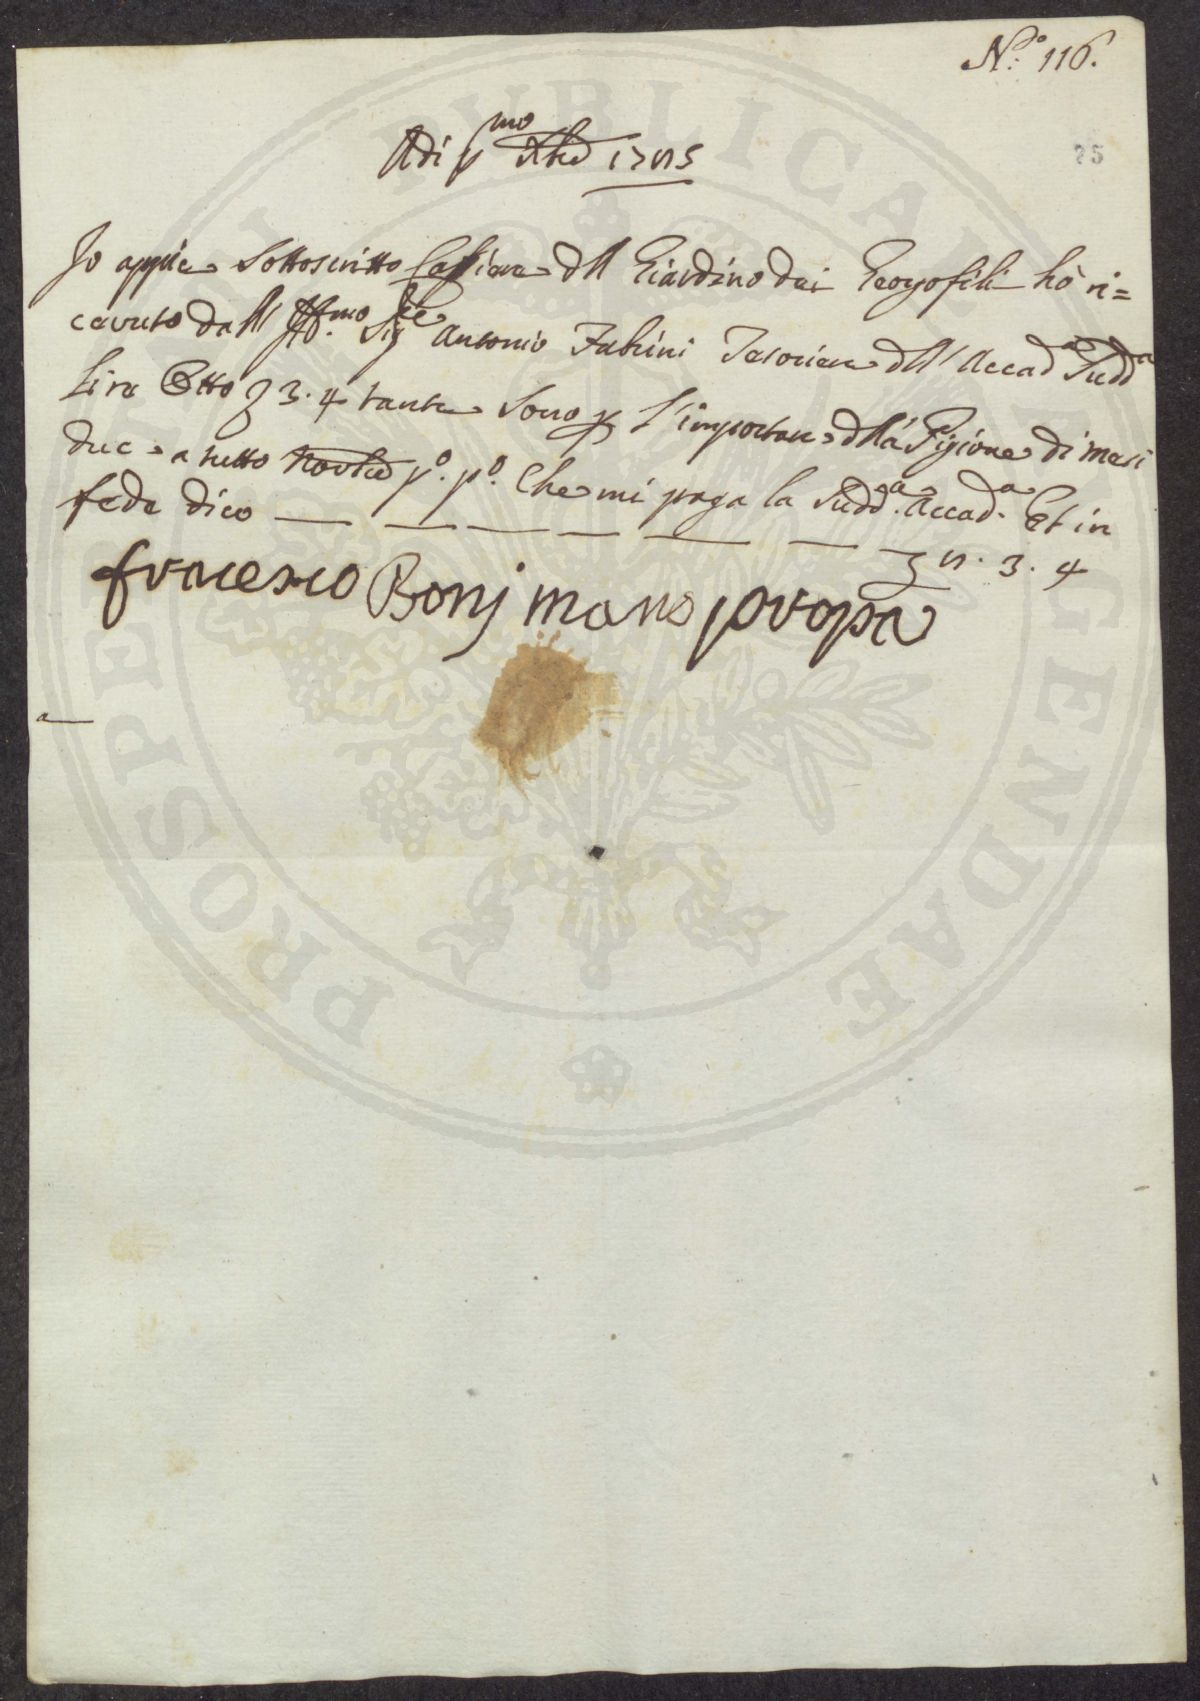 N.° 116.
25
Adi p.mo Xbre 1785
Io appiè Sottoscritto Cassiere dll Giardino dei Georgofili hò ri=
cevuto dall Ill.mo Sig.re Antonio Fabrini Tesoriere dll' Accad.a Sudd.a
Lire Otto 3. 4 tante Sono p L'importare dlla Pigione di mesi
due a tutto Novbre p.° p.° Che mi paga la Sudd.a Accad.a Et in
fede dico — — — — — — — 8. 3. 4
francesco Bonj mano propa
PROSPERITATI PUBLICAE AUGENDAE